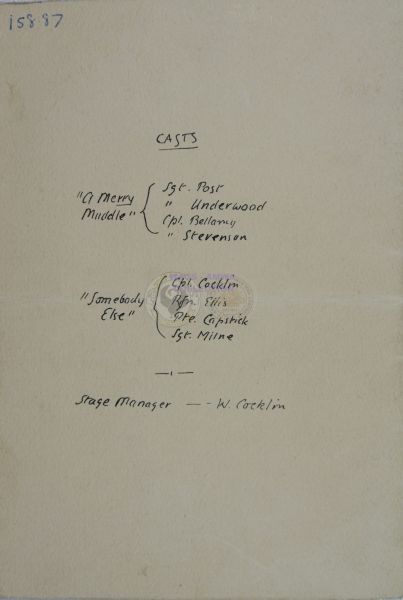 15887
CASTS
"A Merry Muddle"
Sgt. Post
" Underwood
Cpl. Bellamy
" Stevenson
"Somebody Else"
Cpl. Cocklin
Rfn. Ellis
Pte. Capstick
Sgt. Milne
Stage Manager — - W. Cocklin